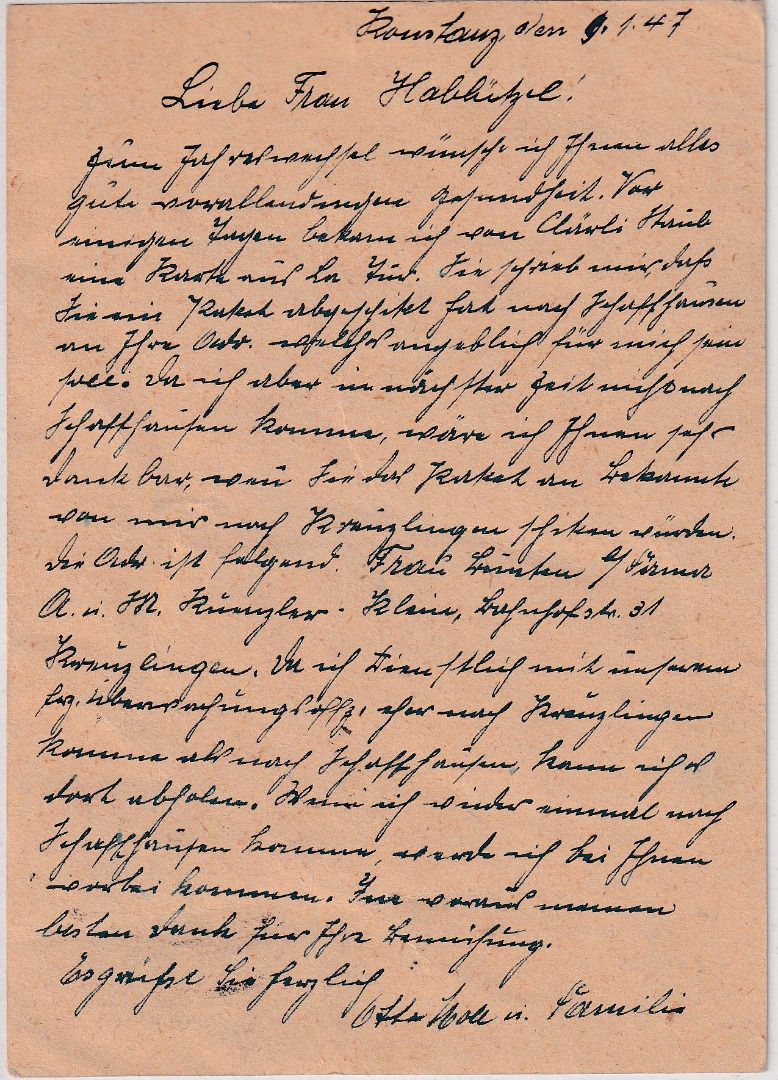 Konstanz den 9.1.47
Liebe Frau Hablützel!
Zum Jahreswechsel wünsche ich Ihnen alles
gute vorallendingen gesundheit. Vor
einigen Tagen bekam ich von Clärli Staub
eine Karte aus La Tur. Sie schrieb mir, daß
Sie ein Paket abgeschikt hat nach Schaffhausen
an Ihre Adr. welches angeblich für mich sein
soll. Da ich aber in nächster Zeit nicht nach
Schaffhausen komme, wäre ich Ihnen sehr
dankbar, wen̄ Sie das Paket an Bekannte
von mir nach Kreuzlingen schiken würden.
Die Adr. ist folgend. Frau Bünten b/ Firma
A. u. M. Kuenzler-Klein, Bahnhofstr. 31
Kreuzlingen. Da ich Dienstlich mit unserem
frz. Überwachungsoffz. eher nach Kreuzlingen
komme als nach Schaffhausen, kann ich es
dort abholen. Wenn ich wider einmal nach
Schaffhausen komme, werde ich bei Ihnen
vorbei kommen. Im voraus meinen
besten Dank für Ihre Bemühung.
Es grüßt Sie herzlich
Otto Moll u. Familie